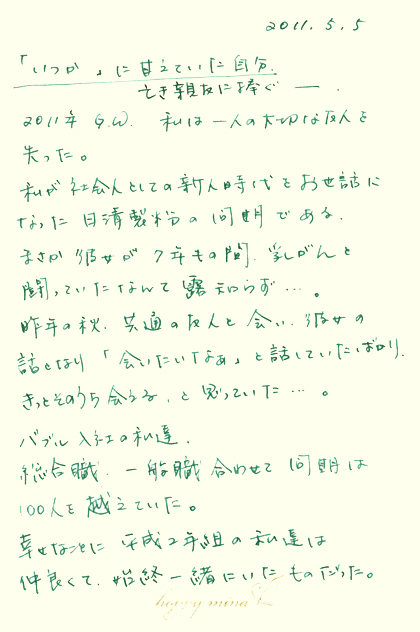 2011.5.5
「いつか」に甘えていた自分.
亡き親友に捧ぐ ―.
2011年 G.W. 私は一人の大切な友人を
失った。
私が社会人としての新人時代をお世話に
なった日清製粉の同期である.
まさか彼女が7年もの間、乳がんと
闘っていたなんて露知らず…。
昨年の秋、共通の友人と会い、彼女の
話となり「会いたいなぁ」と話していたばかり.
きっとそのうち会える、と思っていた…。
バブル入社の私達.
総合職、一般職合わせて同期は
100人を越えていた。
幸せなことに平成2年組の私達は
仲良くて、始終一緒にいたものだった。
happy mina